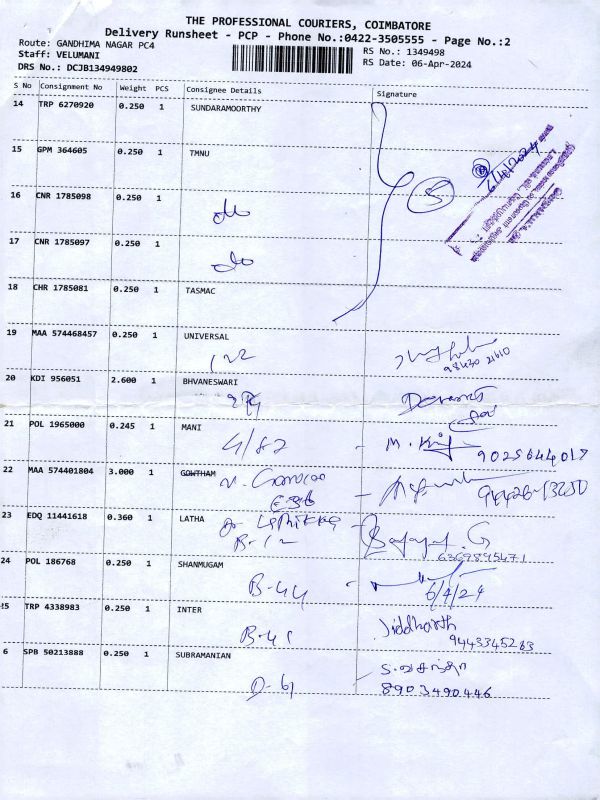 THE PROFESSIONAL COURIERS, COIMBATORE
Delivery Runsheet - PCP - Phone No.:0422-3505555 - Page No.:2
Route: GANDHIMA NAGAR PC4
RS No.: 1349498
Staff: VELUMANI
RS Date: 06-Apr-2024
DRS No.: DCJB134949802
S No Consignment No Weight PCS Consignee Details Signature
14 TRP 6270920 0.250 1 SUNDARAMOORTHY
6/4/2024
15 GPM 364605 0.250 1 TMNU
5
16 CNR 1785098 0.250 1
do
17 CNR 1785097 0.250 1
do
18 CHR 1785081 0.250 1 TASMAC
19 MAA 574468457 0.250 1 UNIVERSAL
122
98430 21610
20 KDI 956051 2.600 1 BHVANESWARI
21 POL 1965000 0.245 1 MANI
4/82 - M. 9025644017
22 MAA 574401804 3.000 1 GOWTHAM
23 EDQ 11441618 0.360 1 LATHA
B-12
6369895471
24 POL 186768 0.250 1 SHANMUGAM
B-44 - 6/4/24
25 TRP 4338983 0.250 1 INTER
B-41 Jiddharth
9443345263
6 SPB 50213888 0.250 1 SUBRAMANIAN
D-61 - S. வசந்தா
8903490446